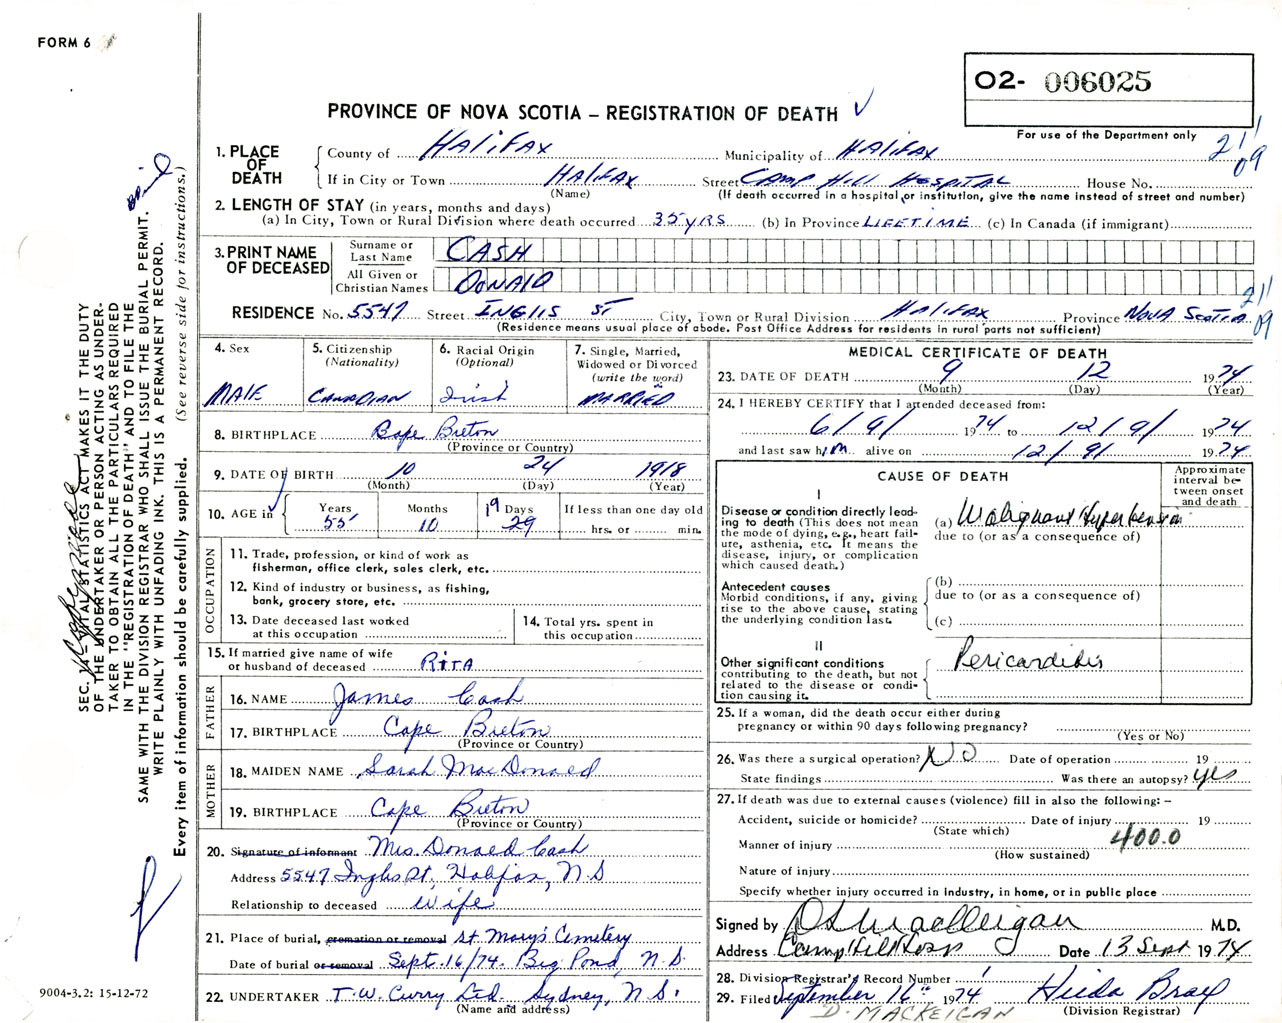 FORM 6
O2- 006025
PROVINCE OF NOVA SCOTIA – REGISTRATION OF DEATH
For use of the Department only
1. PLACE OF DEATH
County of Halifax Municipality of Halifax 21 09
If in City or Town Halifax Street Camp Hill Hospital House No.
(Name) (If death occurred in a hospital or institution, give the name instead of street and number)
2. LENGTH OF STAY (in years, months and days)
(a) In City, Town or Rural Division where death occurred 35 yrs (b) In Province LIFETIME (c) In Canada (if immigrant)
3. PRINT NAME OF DECEASED
Surname or Last Name CASH
All Given or Christian Names DONALD
21 09
RESIDENCE No. 5547 Street INGLIS ST City, Town or Rural Division Halifax Province Nova Scotia
(Residence means usual place of abode. Post Office Address for residents in rural parts not sufficient)
4. Sex
MALE
5. Citizenship
(Nationality)
CANADIAN
6. Racial Origin
(Optional)
Irish
7. Single, Married,
Widowed or Divorced
(write the word)
MARRIED
8. BIRTHPLACE Cape Breton
(Province or Country)
9. DATE OF BIRTH 10 24 1918
(Month) (Day) (Year)
10. AGE in
Years Months Days If less than one day old
55 10 19 29 hrs. or min.
OCCUPATION
11. Trade, profession, or kind of work as
fisherman, office clerk, sales clerk, etc.
12. Kind of industry or business, as fishing,
bank, grocery store, etc.
13. Date deceased last worked
at this occupation
14. Total yrs. spent in
this occupation
15. If married give name of wife
or husband of deceased RITA
FATHER
16. NAME James Cash
17. BIRTHPLACE Cape Breton
(Province or Country)
MOTHER
18. MAIDEN NAME Sarah MacDonald
19. BIRTHPLACE Cape Breton
(Province or Country)
20. Signature of informant Mrs. Donald Cash
Address 5547 Inglis St, Halifax, N.S
Relationship to deceased wife
21. Place of burial, cremation or removal St Mary's Cemetery
Date of burial or removal Sept. 16/74. Big Pond, N.S.
22. UNDERTAKER T.W. Curry Ltd. Sydney, N.S.
(Name and address)
MEDICAL CERTIFICATE OF DEATH
23. DATE OF DEATH 9 12 1974
(Month) (Day) (Year)
24. I HEREBY CERTIFY that I attended deceased from:
6/9/ 1974 to 12/9/ 1974
and last saw him alive on 12/9/ 1974
CAUSE OF DEATH
Approximate
interval be-
tween onset
and death
I
Disease or condition directly lead-
ing to death (This does not mean
the mode of dying, e.g., heart fail-
ure, asthenia, etc. It means the
disease, injury, or complication
which caused death.)
(a) Malignant Hypertension
due to (or as a consequence of)
Antecedent causes
Morbid conditions, if any, giving
rise to the above cause, stating
the underlying condition last.
(b)
due to (or as a consequence of)
(c)
II
Other significant conditions
contributing to the death, but not
related to the disease or condi-
tion causing it.
Pericarditis
25. If a woman, did the death occur either during
pregnancy or within 90 days following pregnancy?
(Yes or No)
26. Was there a surgical operation? NO Date of operation 19
State findings Was there an autopsy? yes
27. If death was due to external causes (violence) fill in also the following: –
Accident, suicide or homicide? Date of injury 19
(State which)
400.0
Manner of injury
(How sustained)
Nature of injury
Specify whether injury occurred in industry, in home, or in public place
Signed by M.D.
Address Camp Hill Hosp Date 13 Sept 1974
28. Division Registrar's Record Number
29. Filed September 16th 1974 Hilda Bray
(Division Registrar)
D. MACKEIGAN
SEC. 14 – VITAL STATISTICS ACT MAKES IT THE DUTY
OF THE UNDERTAKER OR PERSON ACTING AS UNDER-
TAKER TO OBTAIN ALL THE PARTICULARS REQUIRED
IN THE "REGISTRATION OF DEATH" AND TO FILE THE
SAME WITH THE DIVISION REGISTRAR WHO SHALL ISSUE THE BURIAL PERMIT.
WRITE PLAINLY WITH UNFADING INK. THIS IS A PERMANENT RECORD.
Every item of information should be carefully supplied. (See reverse side for instructions.)
9004-3.2: 15-12-72